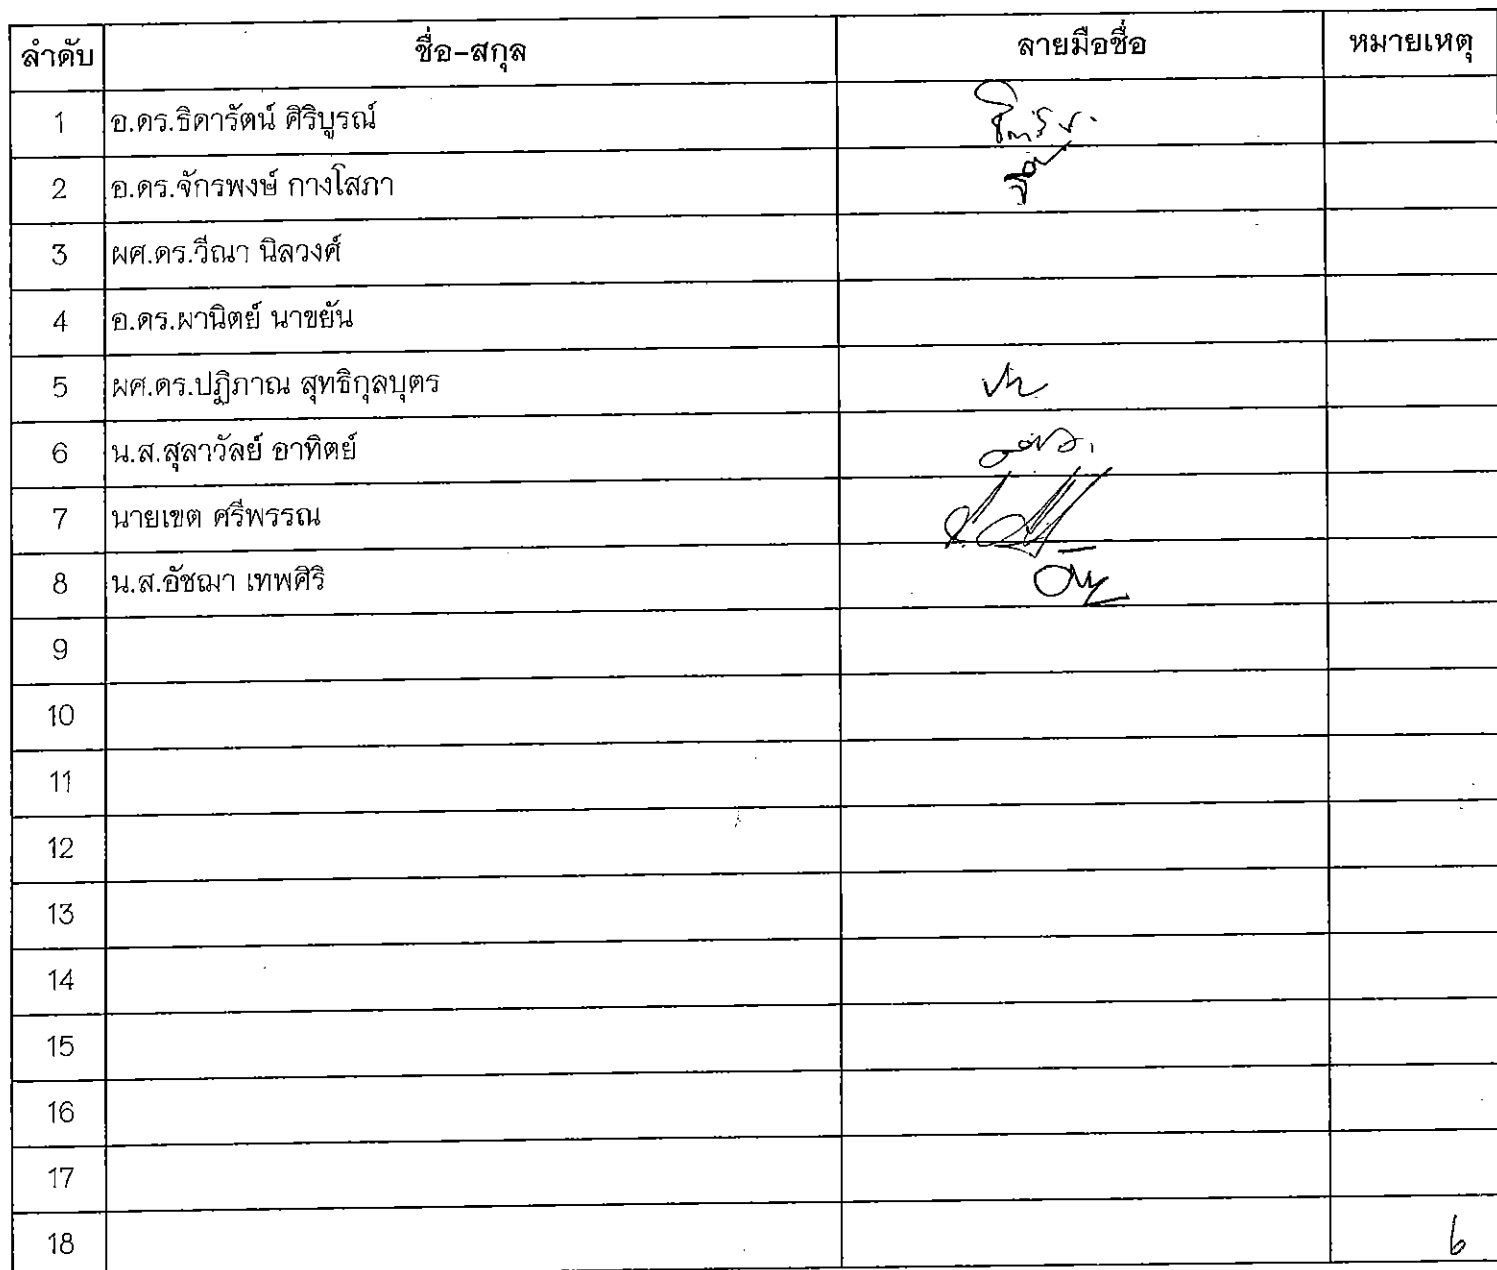 ลำดับ ชื่อ-สกุล ลายมือชื่อ หมายเหตุ
1 อ.ดร.ธิดารัตน์ ศิริบูรณ์
2 อ.ดร.จักรพงษ์ กางโสภา
3 ผศ.ดร.วีณา นิลวงศ์
4 อ.ดร.ผานิตย์ นาขยัน
5 ผศ.ดร.ปฏิภาณ สุทธิกุลบุตร
6 น.ส.สุลาวัลย์ อาทิตย์
7 นายเขต ศรีพรรณ
8 น.ส.อัชฌา เทพศิริ
9
10
11
12
13
14
15
16
17
18 6